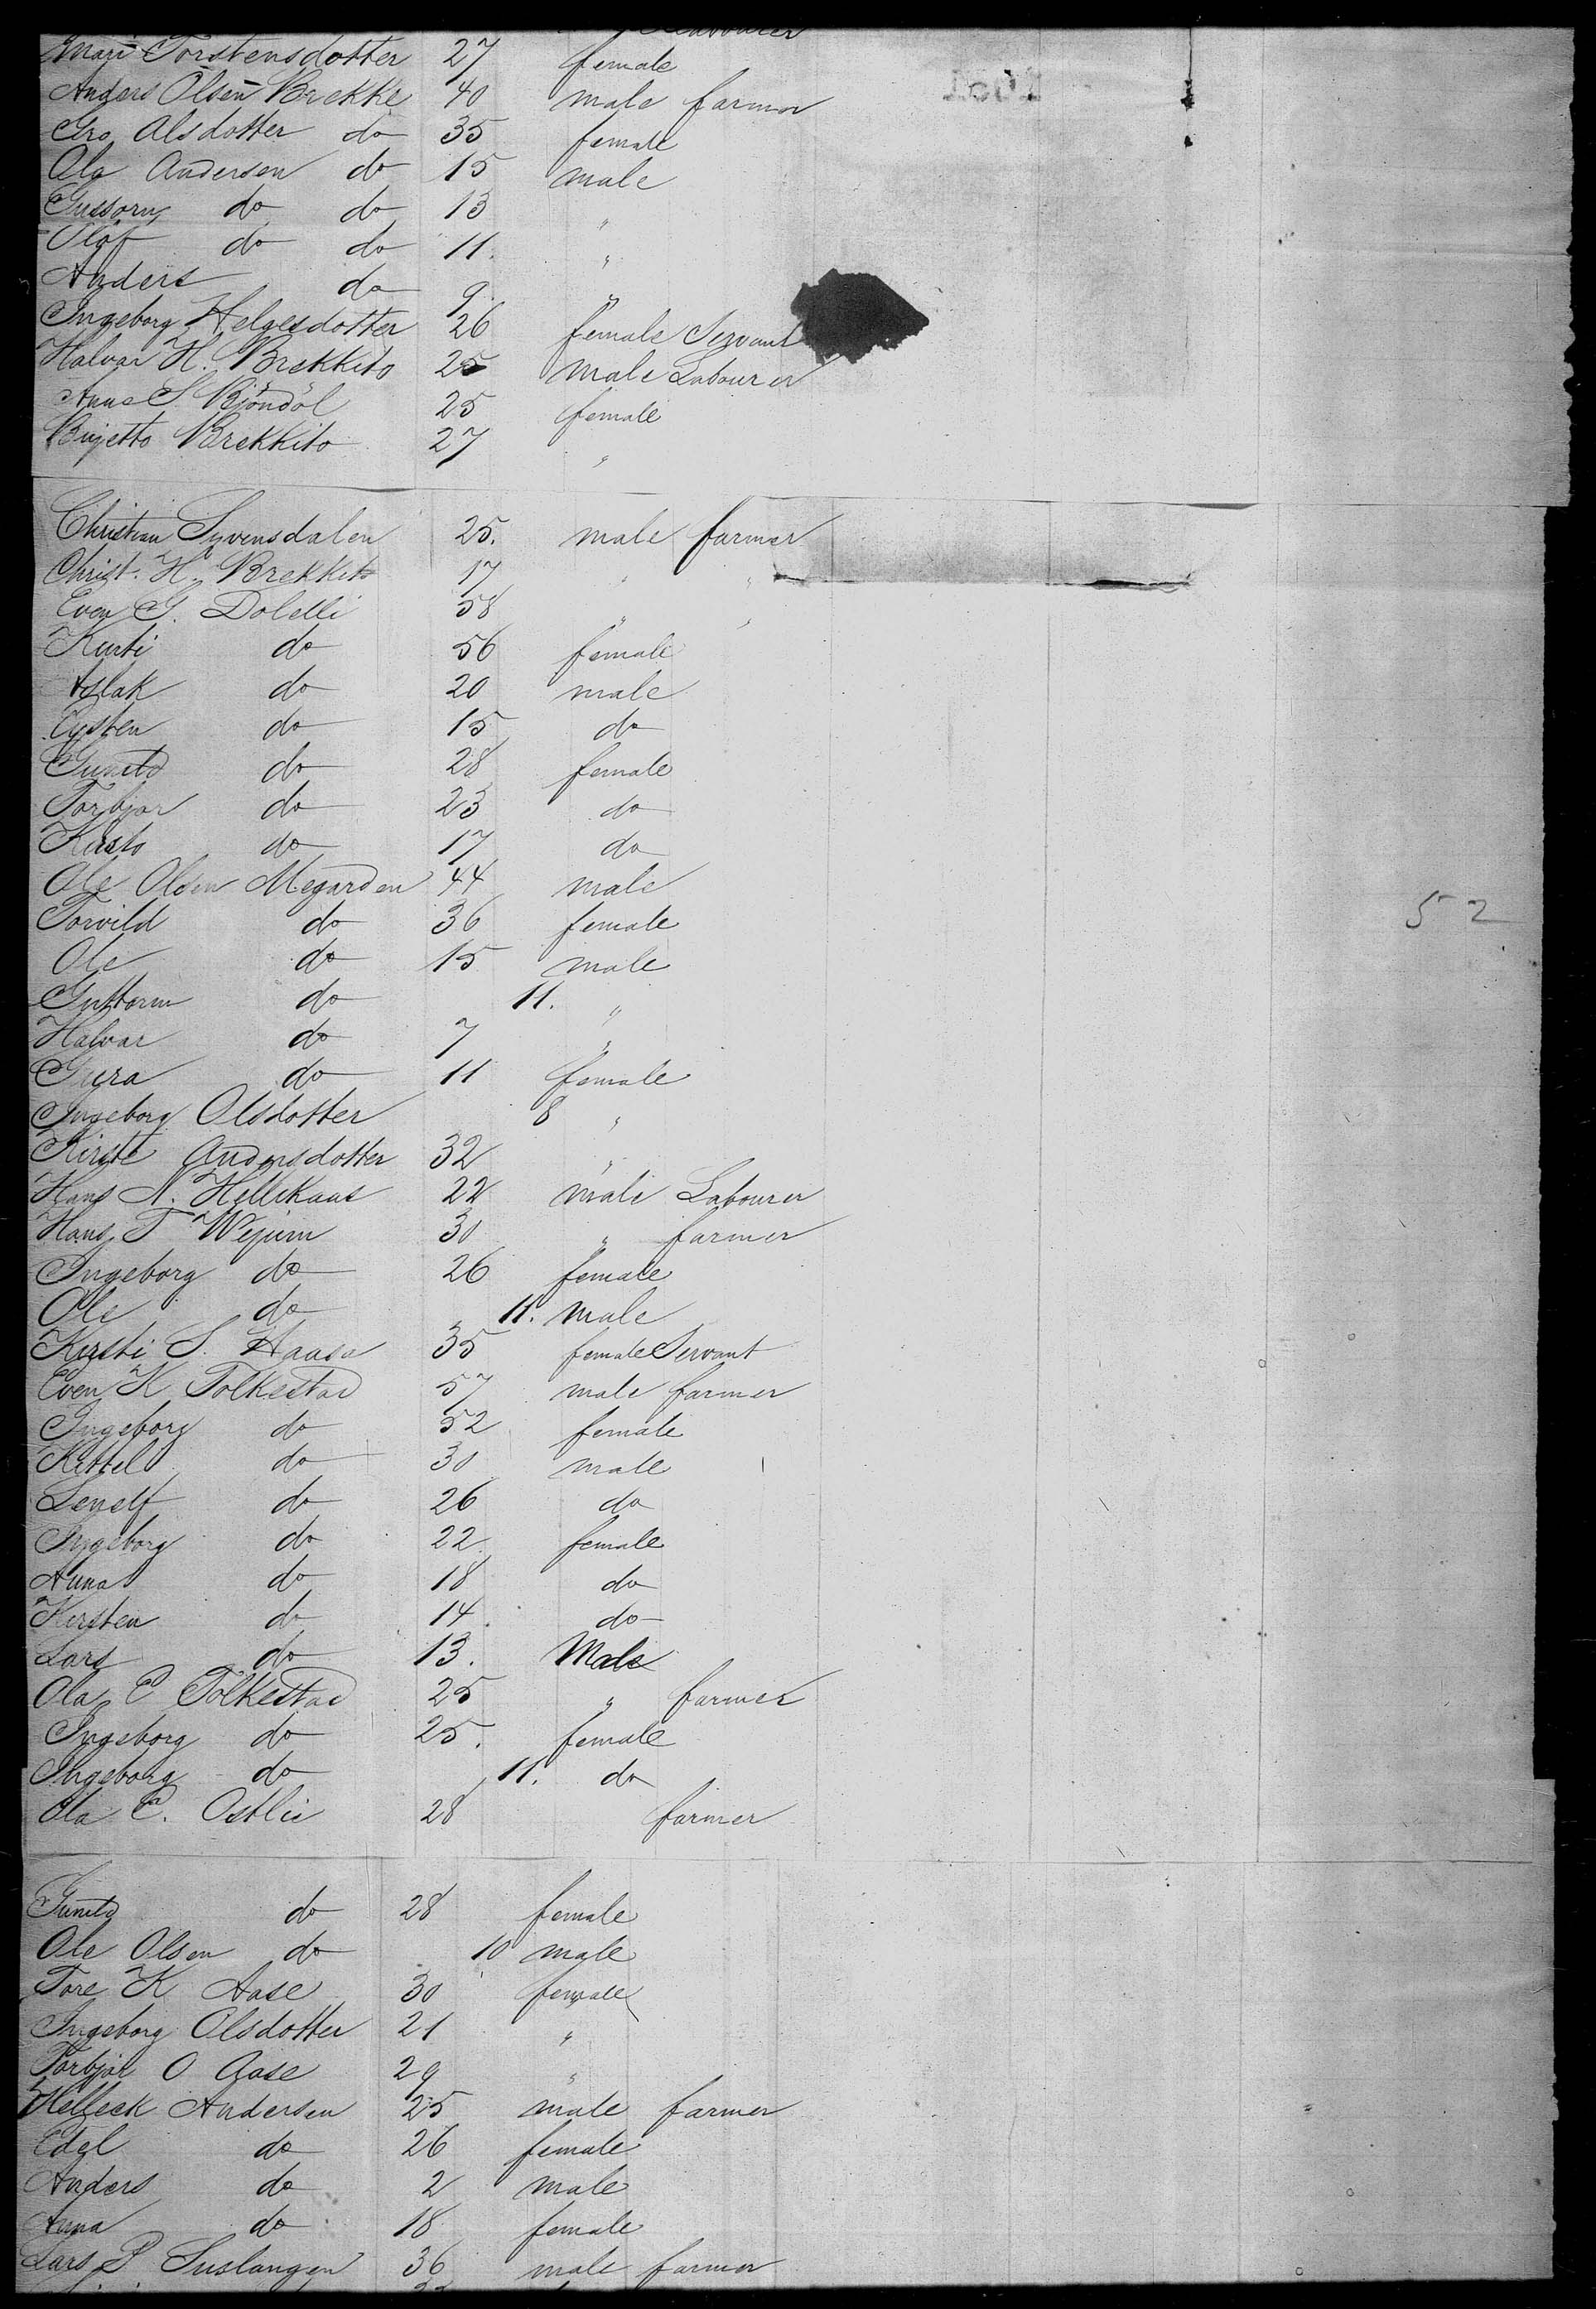 Labourer
Mari Torstensdotter 27 female
Anders Olsen Brekke 40 male farmer
Gro Alsdotter do 35 female
Ola Andersen do 15 male
Gussorm do do 13 "
Olof do do 11. "
Anders do 9 "
Ingeborg Helgesdotter 26 female Servant
Halvar H. Brekkito 25 male Labourer
Anne S. Bjöndöl 25 female
Birjetto Brekkito 27 "
Christian Syvensdalen 25. male farmer
Christ. H. Brekkito 17 " "
Even G. Dolelli 58 " "
Kirsti do 56 female
Aslak do 20 male
Eysten do 15 do
Gunild do 28 female
Torbjor do 23 do
Kirsto do 17 do
Ole Olsen Megarden 44 male
Torvild do 36 female
Ole do 15 male
Guttorm do 11. "
Halvar do 7 "
Gura do 11 female
Ingeborg Olsdotter 8 "
Kirste Andersdotter 32 "
Hans N. Hellikaas 22 male Labourer
Hans T Wejum 30 " farmer
Ingeborg do 26 female
Ole do 11. male
Kirsti S. Haasa 35 female Servant
Even K Tolkestad 57 male farmer
Ingeborg do 52 female
Kittel do 30 male
Senelf do 26 do
Ingeborg do 22 female
Anna do 18 do
Kirsten do 14 do
Lars do 13. Male
Ola E Tolkestad 25 " farmer
Ingeborg do 25. female
Ingeborg do 11. do
Ola E. Ostlie 28 farmer
52
Gunild do 28 female
Ole Olsen do 10 male
Tore K Aase 30 female
Ingeborg Olsdotter 21 "
Torbjor O Aase 29 "
Helleck Andersen 25 male farmer
Edel do 26 female
Anders do 2 male
Anna do 18 female
Lars P Suslangen 36 male farmer